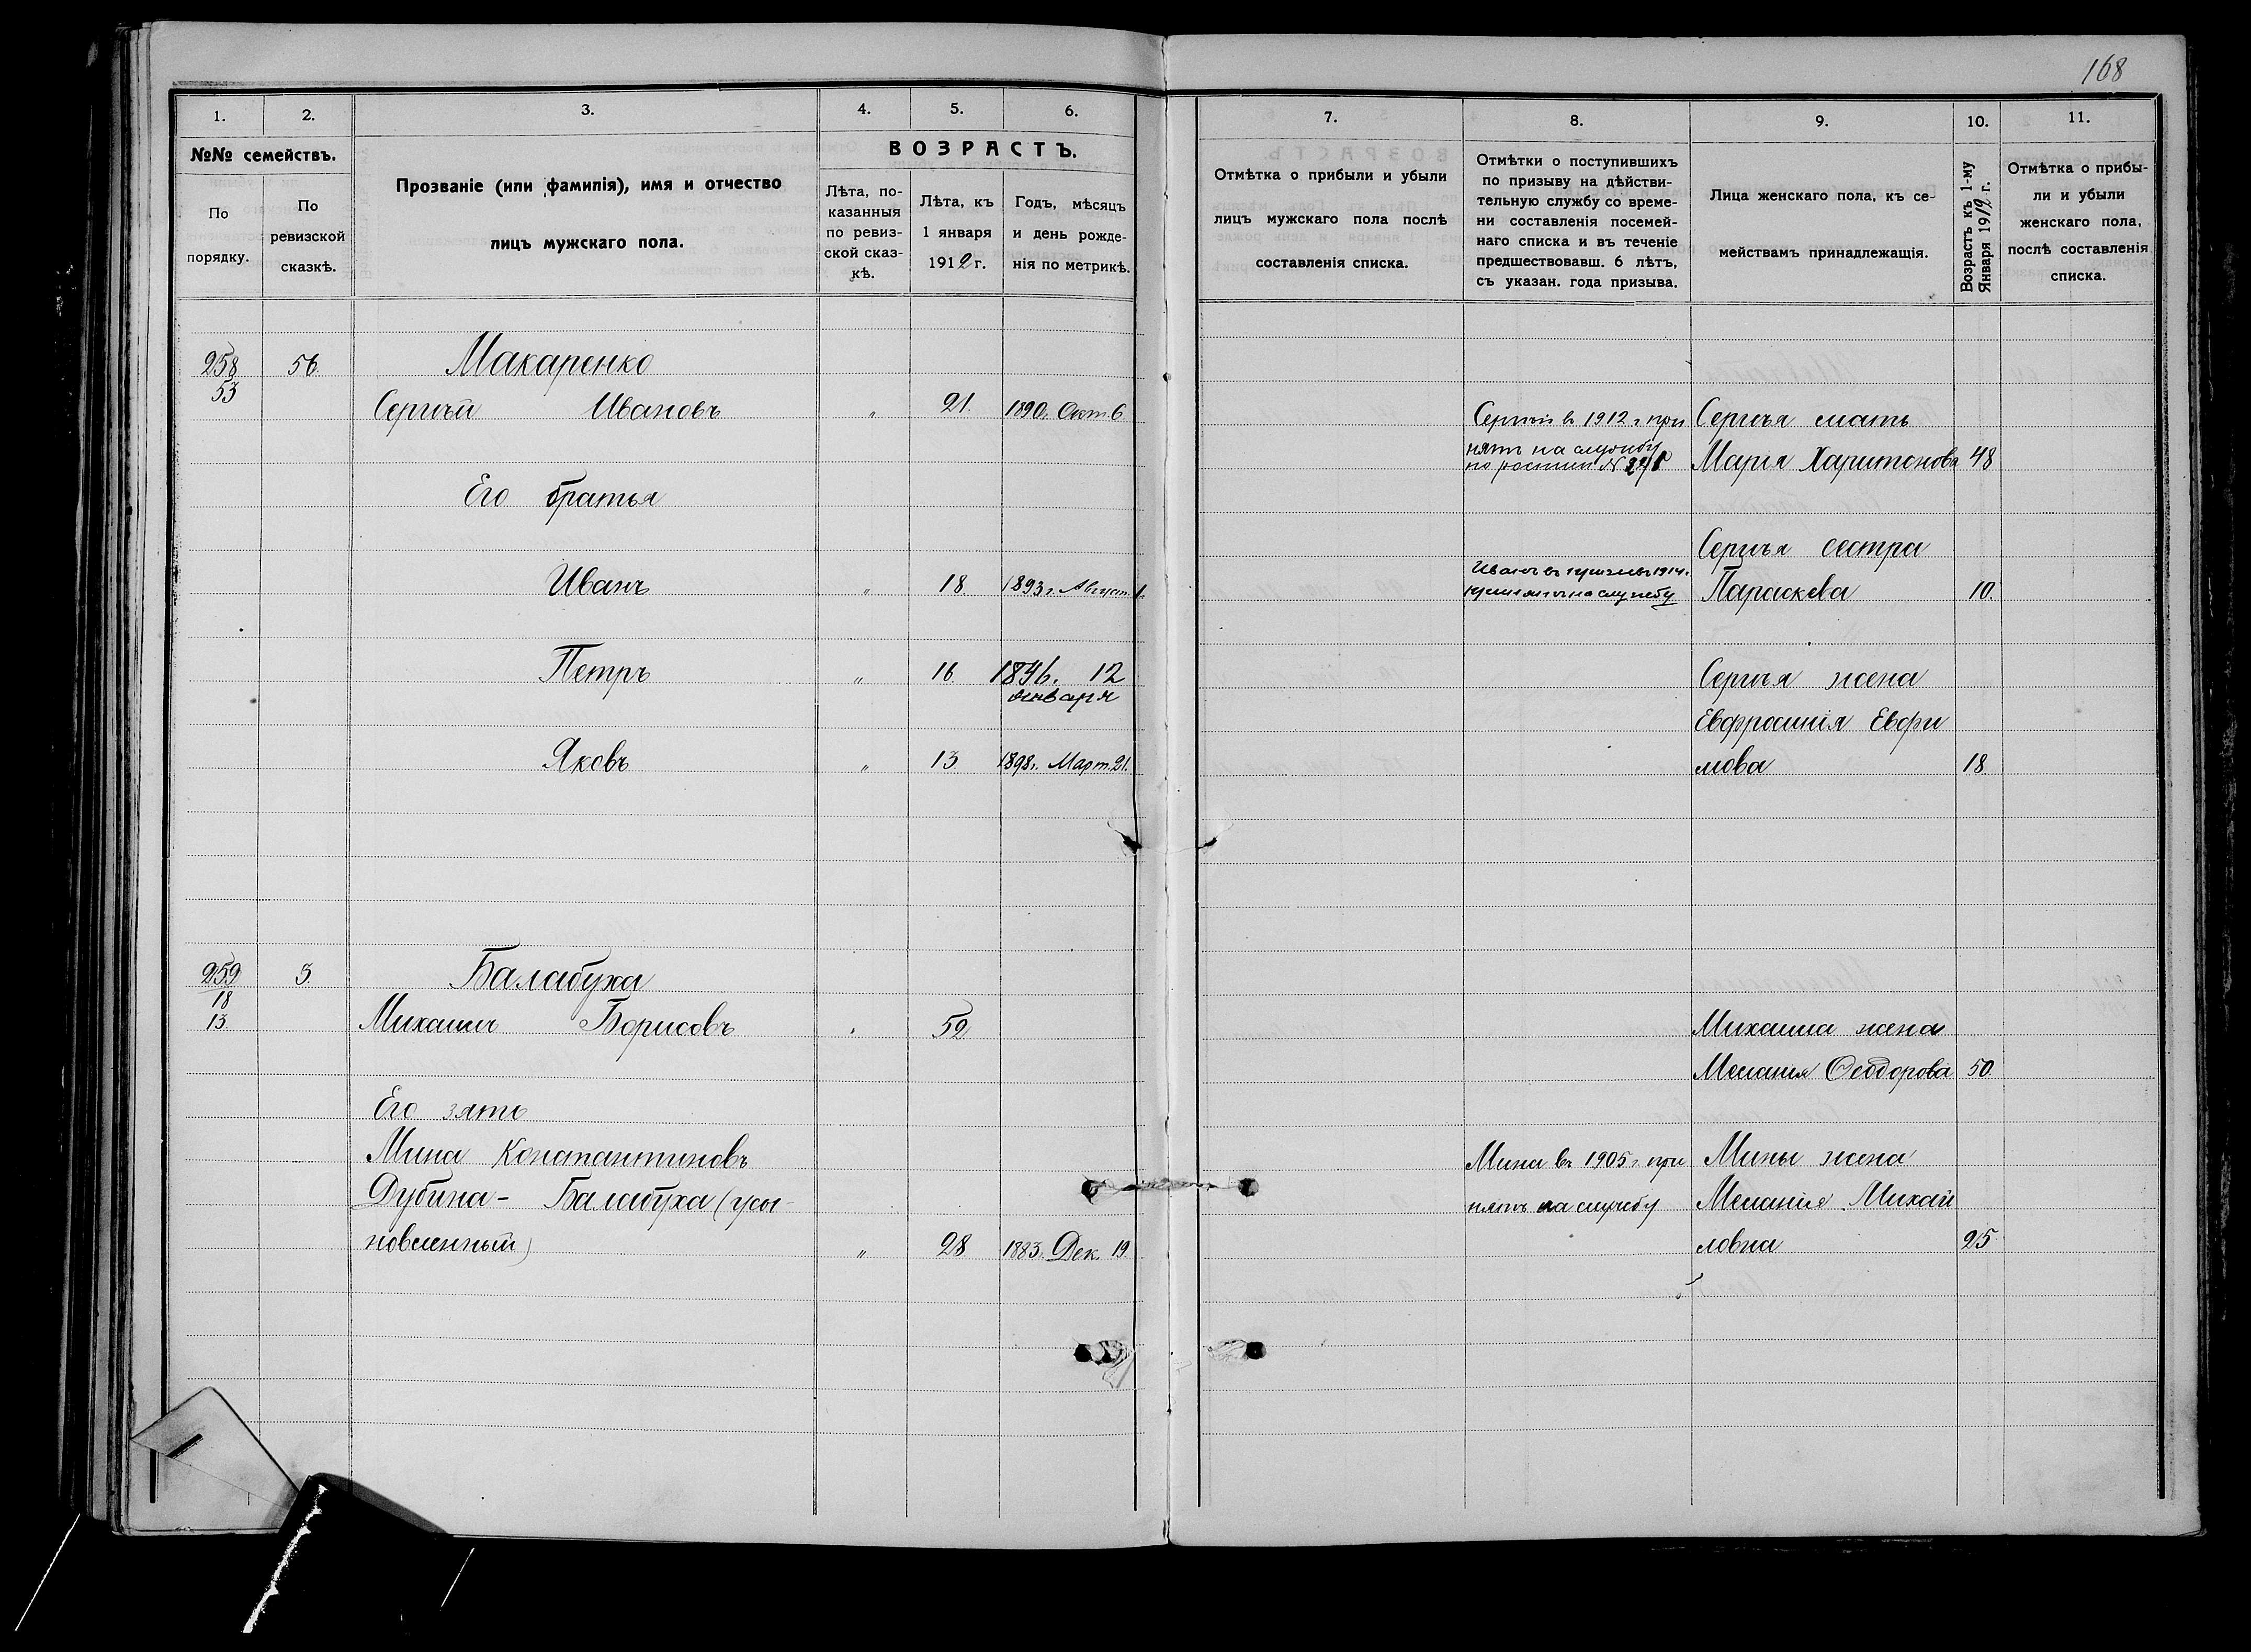 168
1.
2.
3.
4.
5.
6.
№№ семействъ.
По порядку.
По ревизской сказкѣ.
Прозваніе (или фамилія), имя и отчество
лицъ мужскаго пола.
ВОЗРАСТЪ.
Лѣта, по-
казанныя
по ревиз-
ской сказ-
кѣ.
Лѣта, къ
1 января
1912 г.
Годъ, мѣсяцъ
и день рожде-
нія по метрикѣ.
7.
8.
9.
10.
11.
Отмѣтка о прибыли и убыли
лицъ мужскаго пола послѣ
составленія списка.
Отмѣтки о поступившихъ
по призыву на дѣйстви-
тельную службу со време-
ни составленія посемей-
наго списка и въ теченіе
предшествовавш. 6 лѣтъ,
съ указан. года призыва.
Лица женскаго пола, къ се-
мействамъ принадлежащія.
Возрастъ къ 1-му
Января 1912 г.
Отмѣтка о прибы-
ли и убыли
женскаго пола,
послѣ составленія
списка.
258 56. Макаренко
53
Сергѣй Ивановъ " 21. 1890 г. Окт. 6
Сергѣй въ 1912 г при
нятъ на службу
по
Сергѣя мать
Марія Харитонова 48
Его братья
Иванъ " 18. 1893 г. Август. 1.
Иванъ въ 1914 г.
на службу
Сергѣя сестра
Параскева 10.
Петръ " 16. 1896. 12
января
Яковъ " 13 1898 г. Март. 21.
Сергѣя жена
Евфросинія Ефри
мова 18
259 3. Балабуха
18
13.
Михаилъ Борисовъ 52
Михаила жена
Меланія Ѳеодорова 50.
Его зять
Мина Константиновъ
Дубина- Балабуха (усы-
новленный) " 28 1883 г. Дек. 19
Мина въ 1905 г. при
нятъ на службу
Мины жена
Меланія Михай
ловна 25.